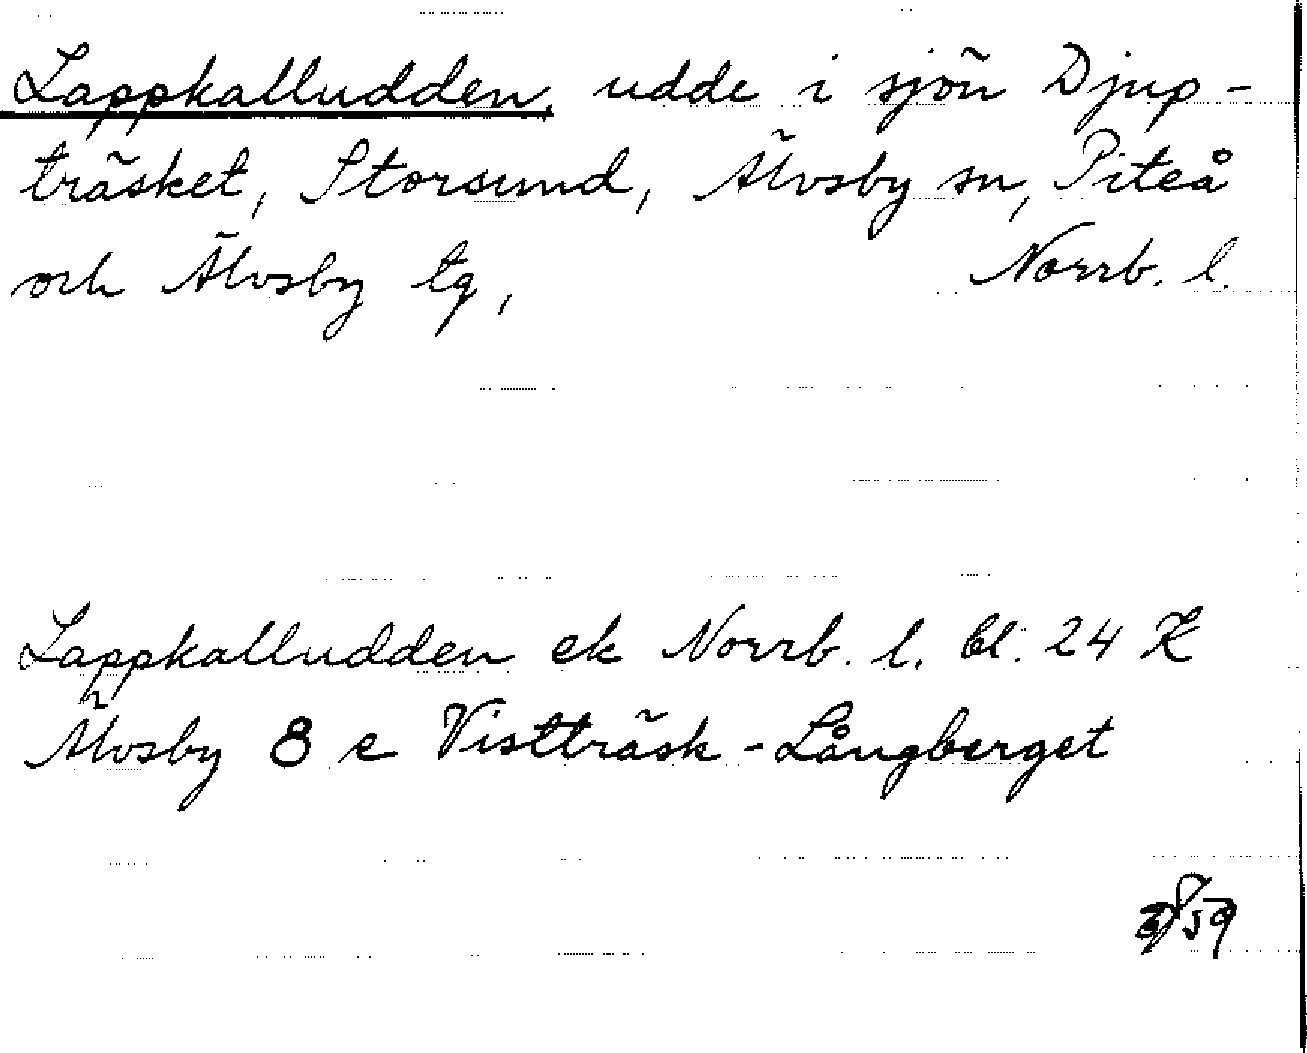 Lappkalludden, udde i sjön Djup-
träsket, Storsund, Älvsby sn, Piteå
och Älvsby tg, Norrb. l.
Lappkalludden ek Norrb. l. bl. 24 K
Älvsby 8 e Vistträsk - Långberget
59